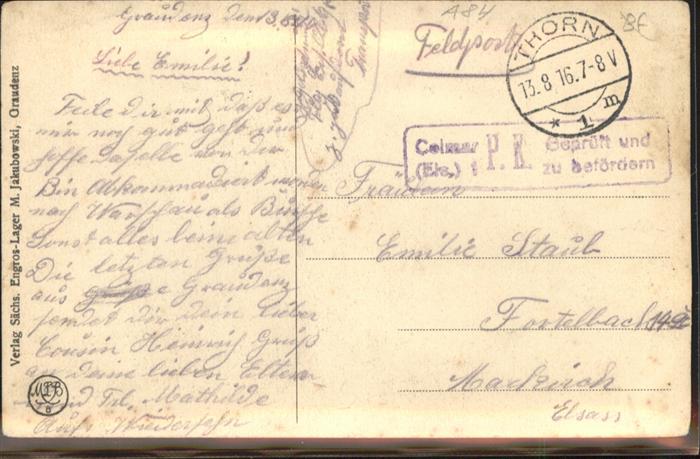 Graudenz den 13.8.16
Liebe Emilie!
Teile dir mit daß es
mir noch gut geht und
hoffe dasselbe von dir
Bin Abkommandiert worden
nach Warschau als Bursche
Sonst alles beim alten
Die letzten Grüße
aus Graudenz
sendet dir dein lieber
Cousin Heinrich Gruß
an deine lieben Eltern
und Frl. Mathilde
Auf Wiedersehn
484
Feldpost
THORN
13.8.16.7-8V
* 1 m
Colmar P. K. Geprüft und
(Els.) 1 zu befördern
Fräulein
Emilie Staub
Fortelbach 149
Markirch
Elsass
Verlag Sächs. Engros-Lager M. Jakubowski, Graudenz